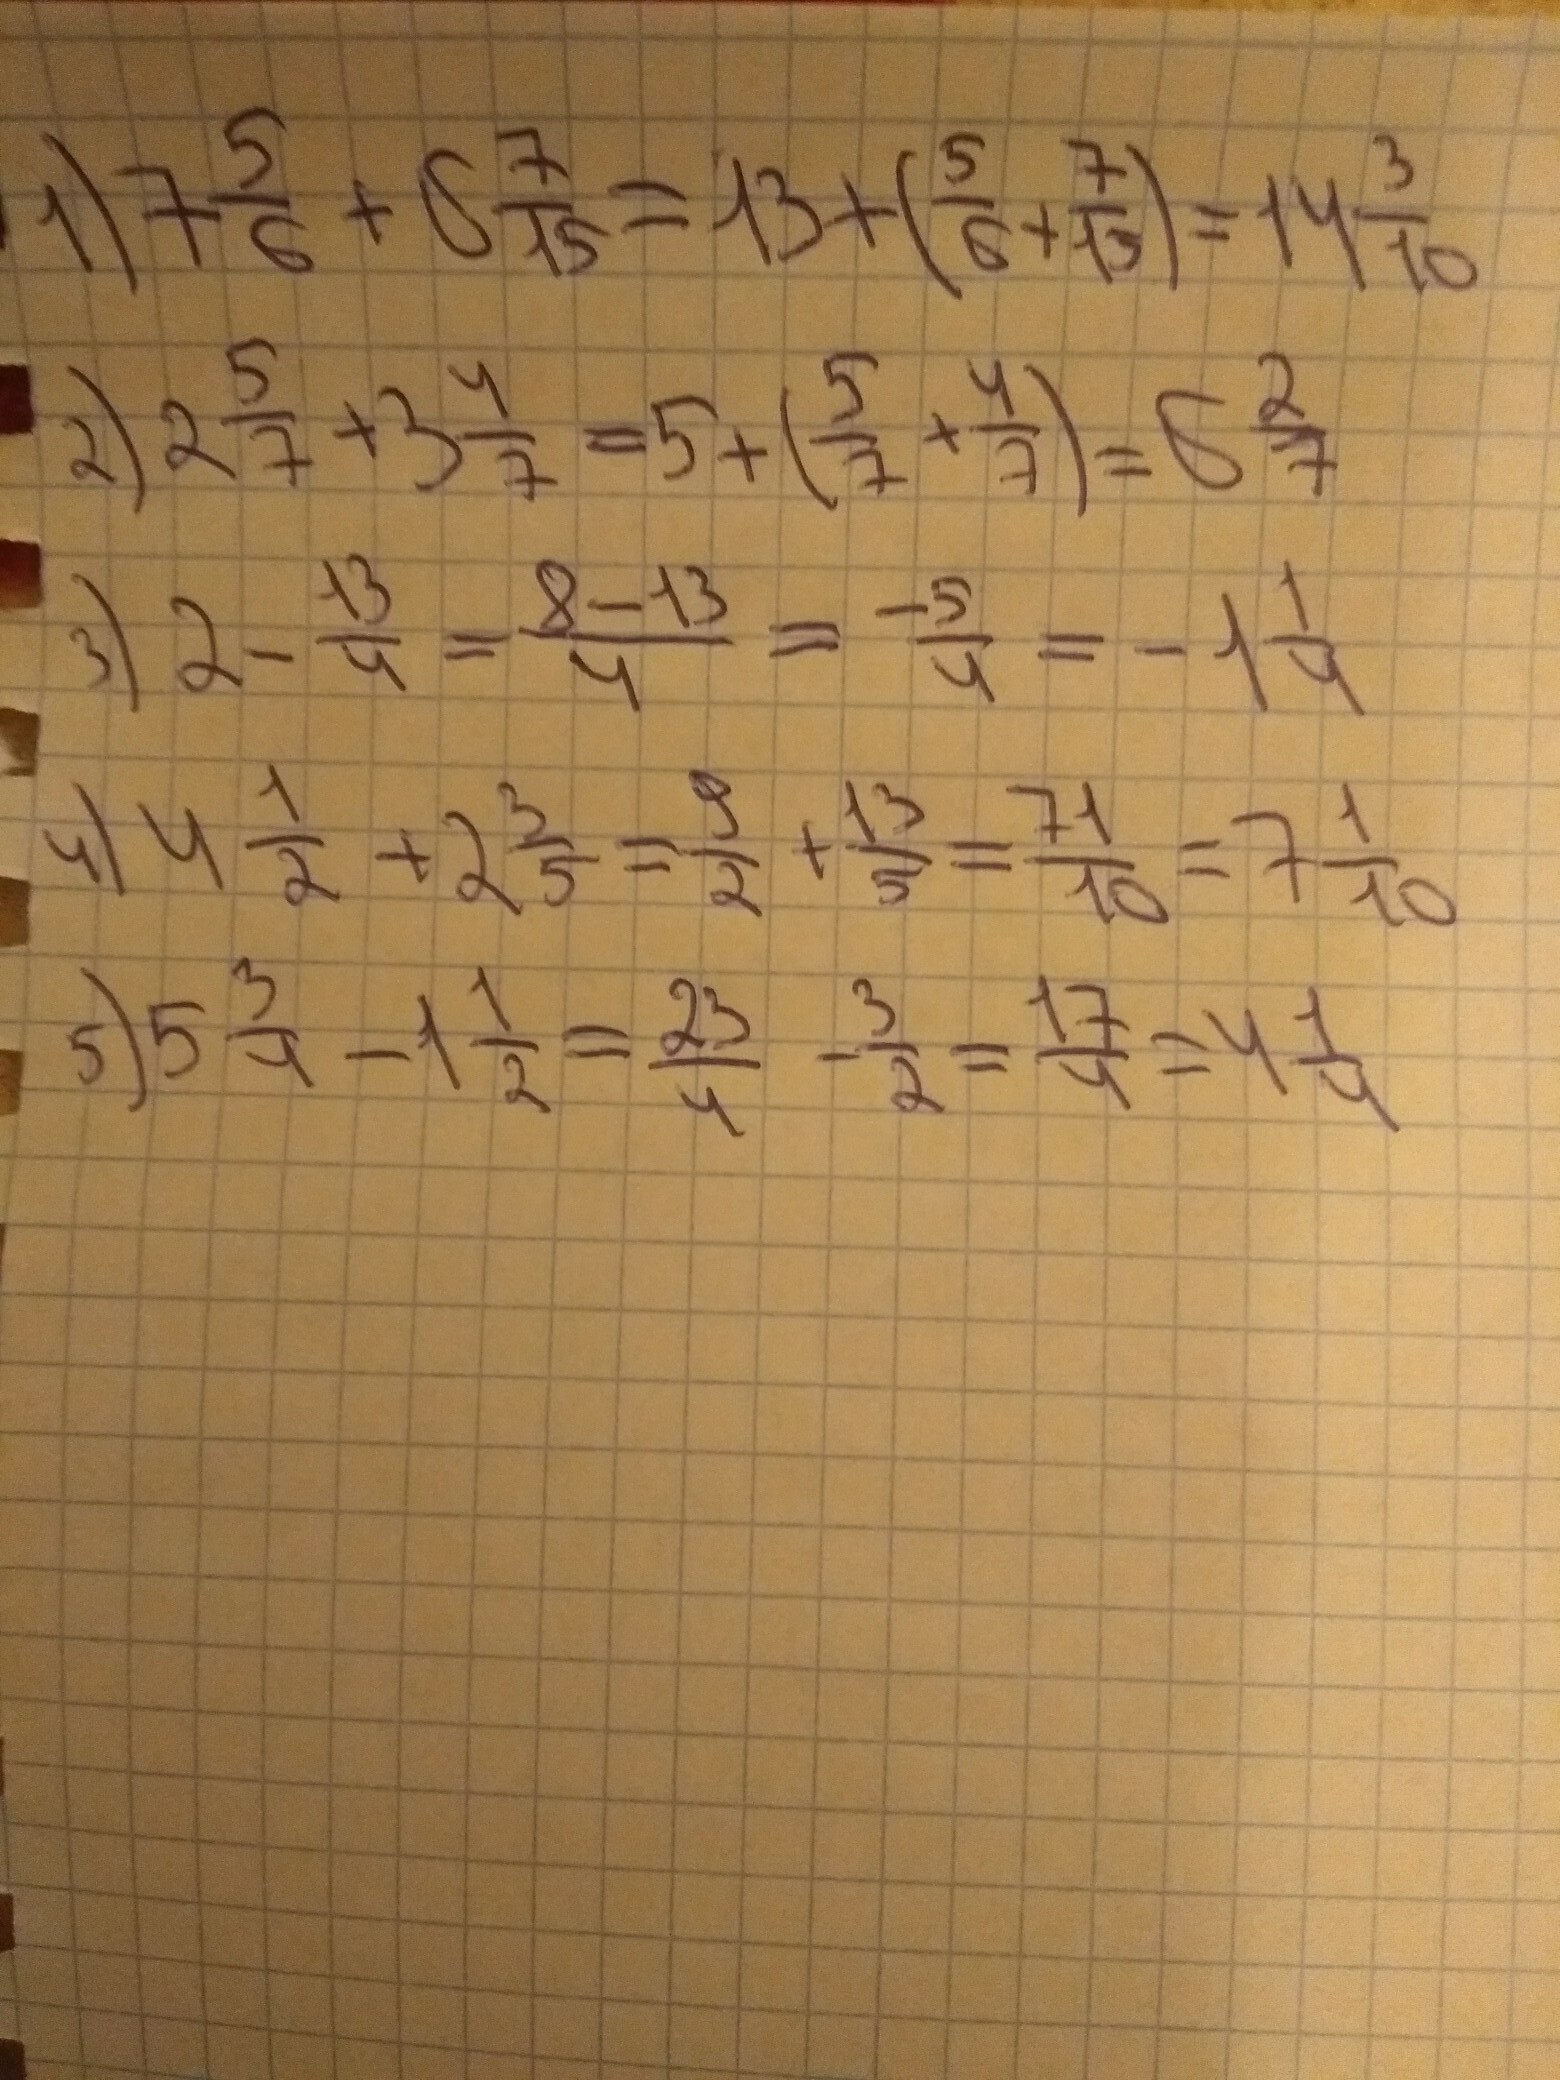 1) 7 5/6 + 6 7/15 = 13 + (5/6 + 7/15) = 14 3/10
2) 2 5/7 + 3 4/7 = 5 + (5/7 + 4/7) = 6 2/7
3) 2 - 13/4 = (8 - 13)/4 = -5/4 = -1 1/4
4) 4 1/2 + 2 3/5 = 9/2 + 13/5 = 71/10 = 7 1/10
5) 5 3/4 - 1 1/2 = 23/4 - 3/2 = 17/4 = 4 1/4